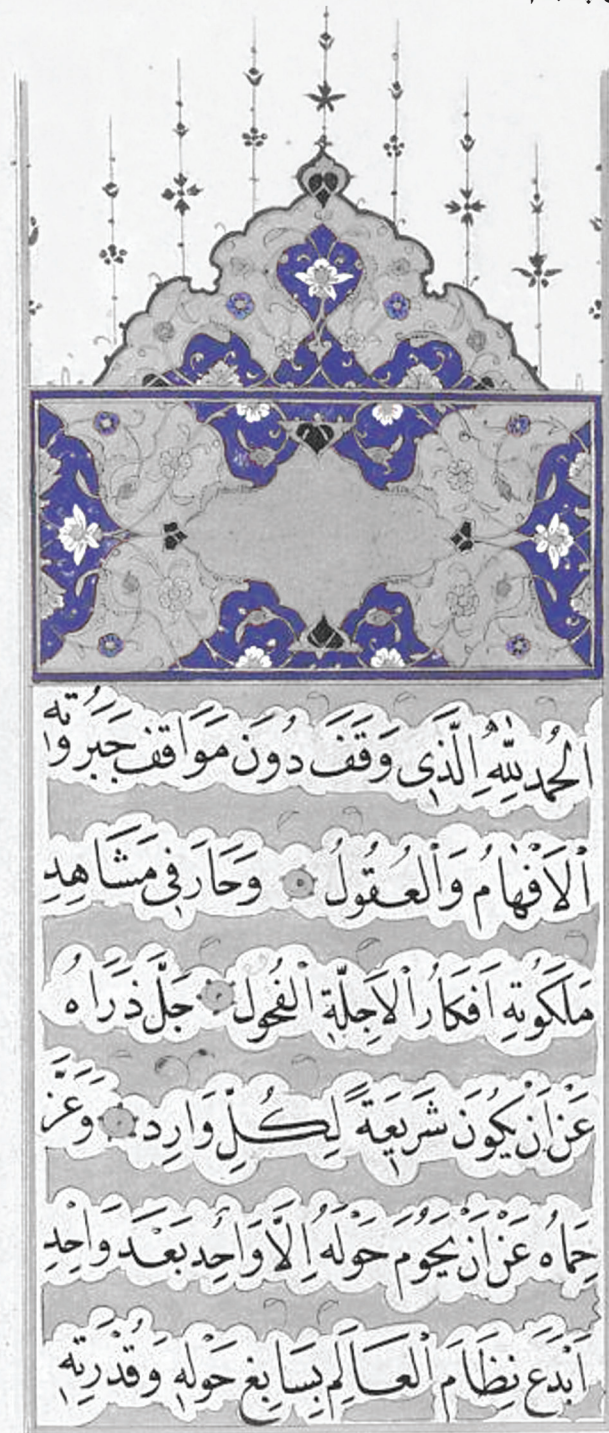 الْحَمْدُ لِلّٰهِ الَّذِى وَقَفَ دُونَ مَوَاقِفِ جَبَرُوتِهِ
اَلْاَفْهَامُ وَالْعُقُولُ وَحَارَ فِى مَشَاهِدِ
مَلَكُوتِهِ اَفْكَارُ الْاَجِلَّةِ الْفُحُولِ جَلَّ ذَرَاهُ
عَنْ اَنْ يَكُونَ شَرِيعَةً لِكُلِّ وَارِدٍ وَعَزَّ
حِمَاهُ عَنْ اَنْ يَحُومَ حَوْلَهُ اِلَّا وَاحِدٌ بَعْدَ وَاحِدٍ
اَبْدَعَ نِظَامَ الْعَالَمِ بِسَابِغِ حَوْلِهِ وَقُدْرَتِهِ